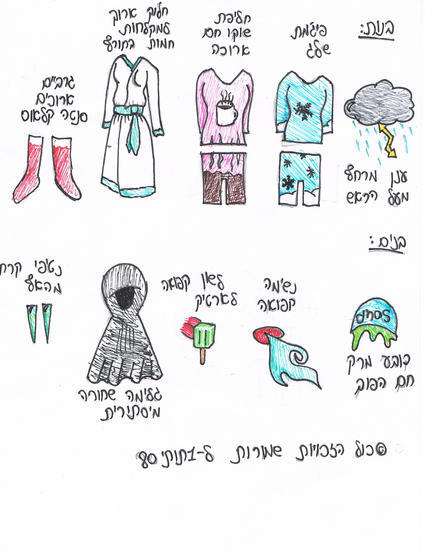 בנות:
ענן מרחף
מעל הראש
פיג'מת
שלג
חליפת
שוקו חם
ארוכה
חלוק ארוך
למקלחות
חמות בחורף
גרביים
ארוכים
סנטה קלאוס
בנים:
soup
כובע מרק
חם הפוך
נשימה
קפואה
לשון קפואה
לארטיק
גלימה שחורה
מיסתורית
נטיפי קרח
מהאף
©כול הזכויות שמורות